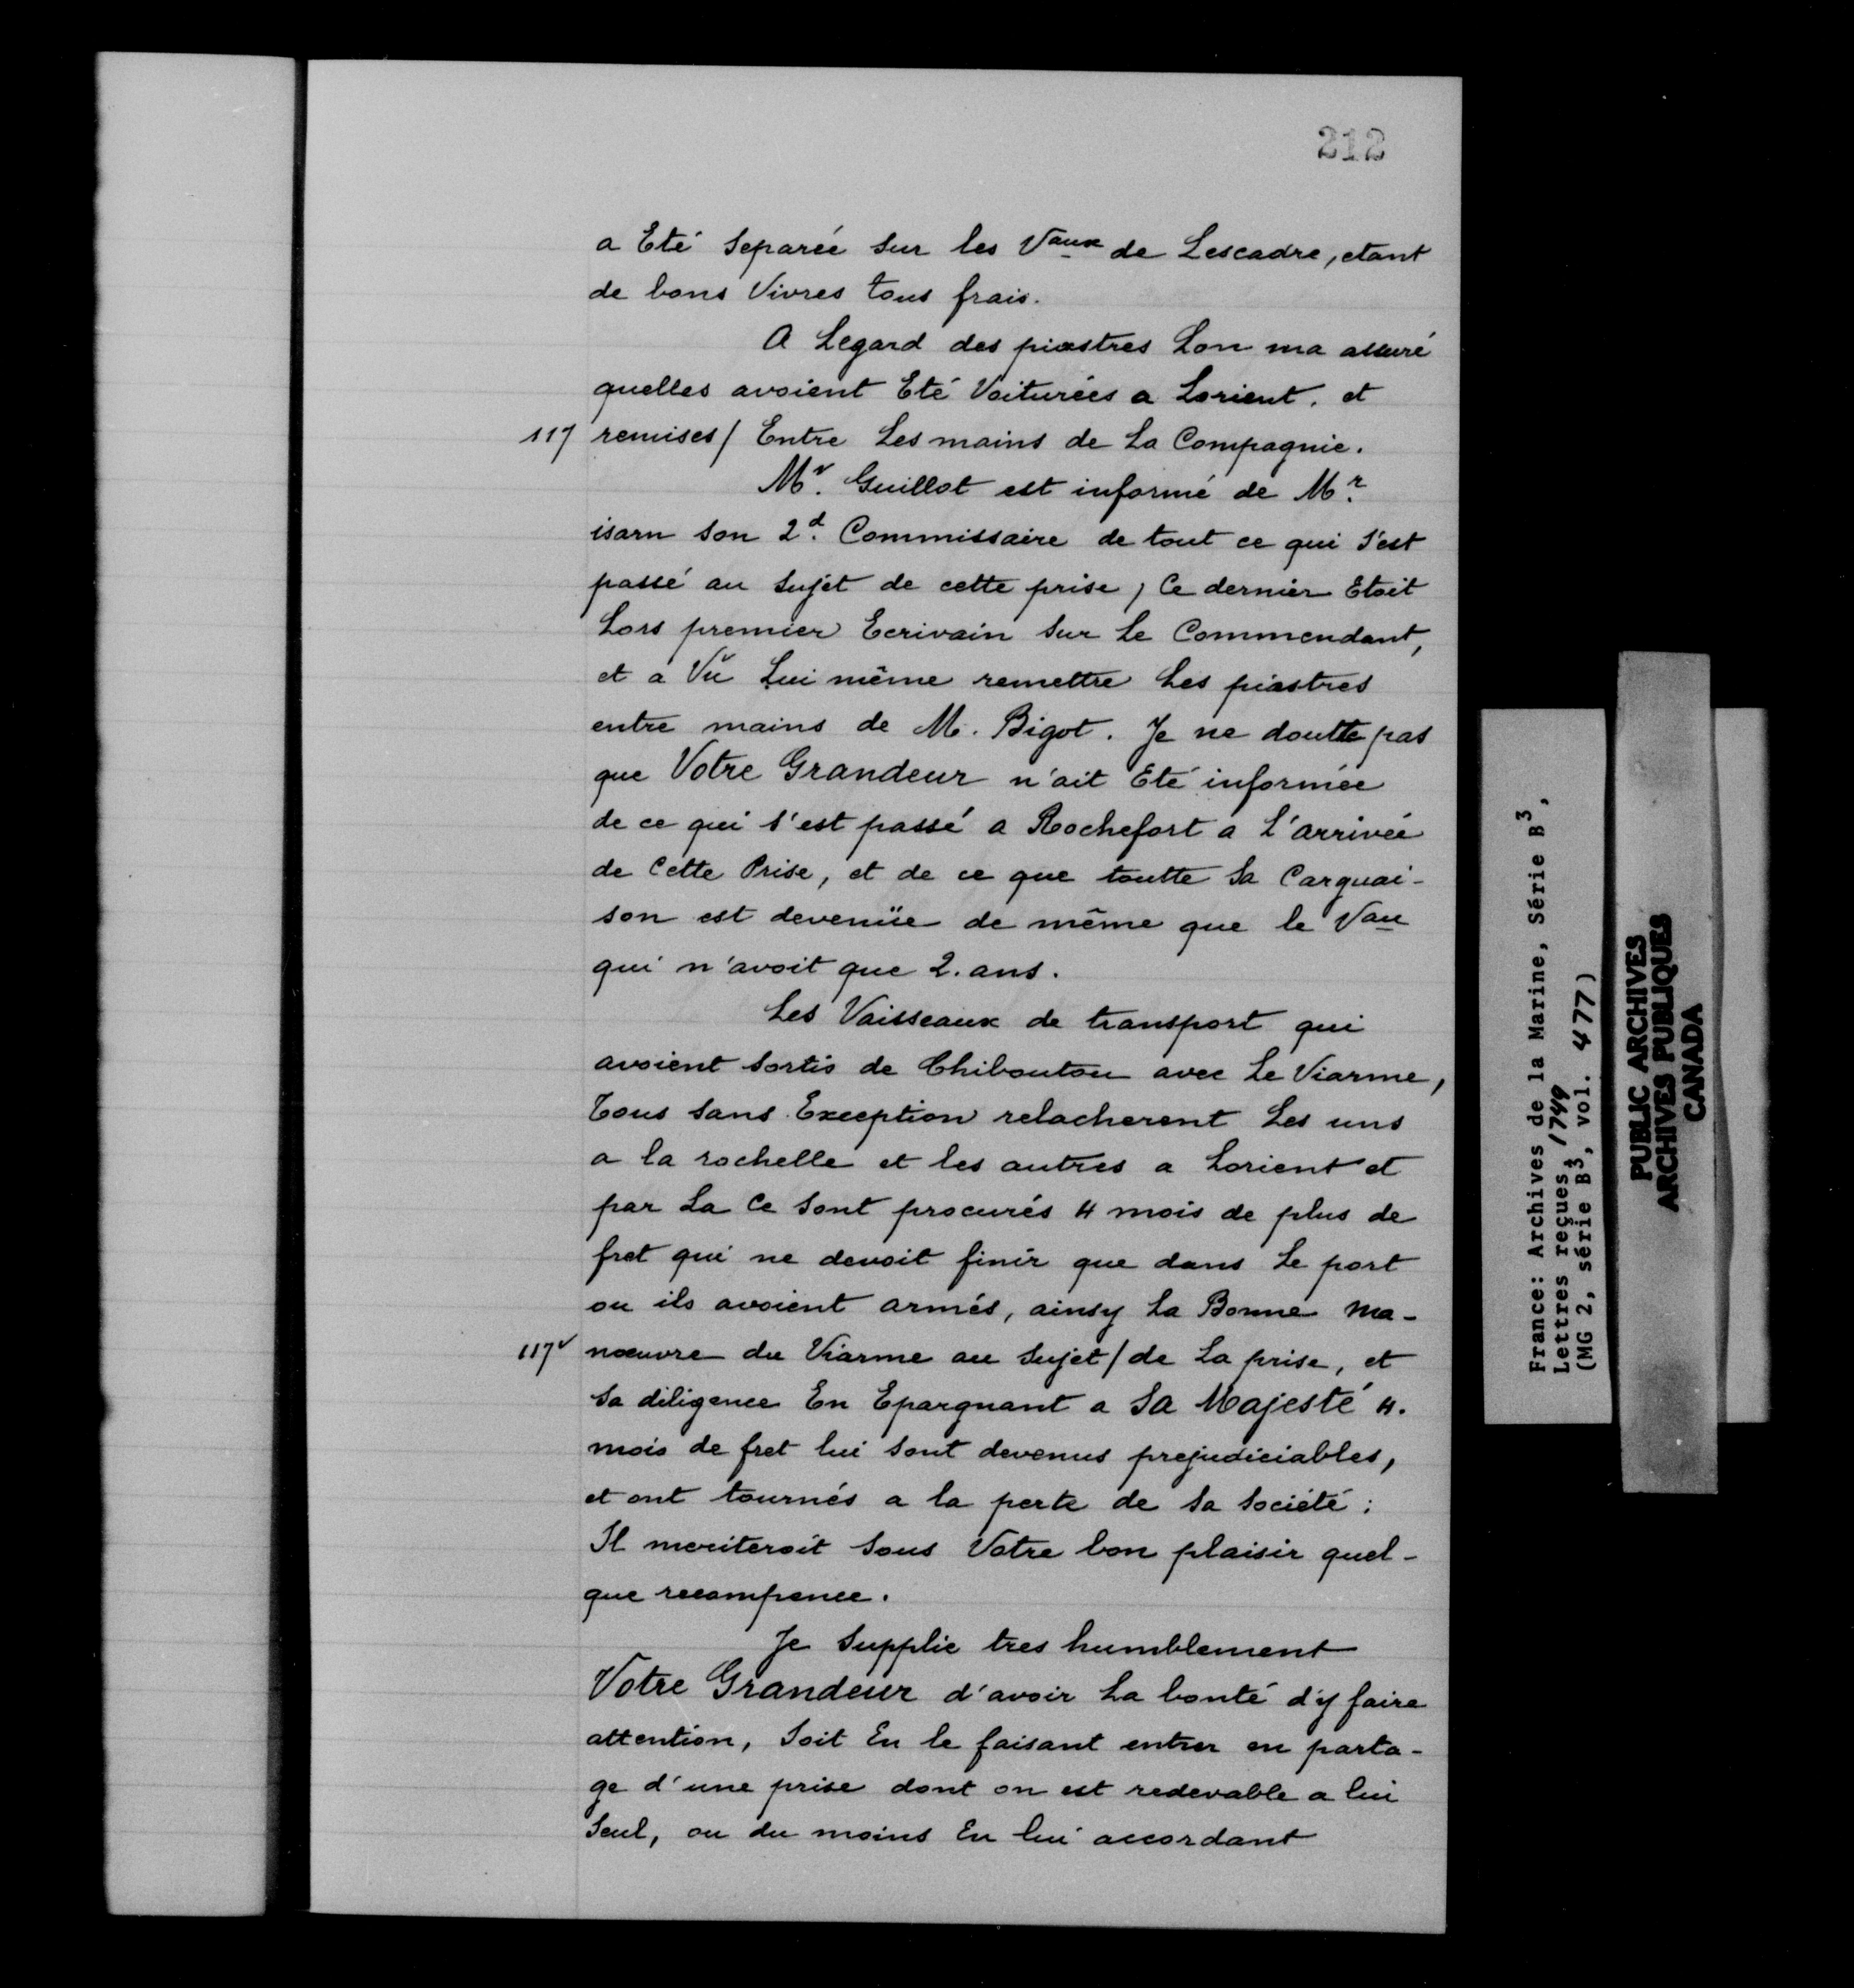 212
a Eté Separée sur les Vaux de Lescadre, etant
de bons Vivres tous frais.
A Legard des piastres Lon ma assuré
quelles avoient Eté Voiturées a Lorient. et
117 remises / Entre Les mains de La Compagnie.
Mr. Guillot est informé de Mr.
isarn son 2d. Commissaire de tout ce qui s'est
passé au Sujet de cette prise ; Ce dernier Etoit
Lors premier Ecrivain sur Le Commendant,
et a Vû Lui même remettre Les piastres
entre mains de M. Bigot. Je ne doutte pas
que Votre Grandeur n'ait Eté informée
de ce qui s'est passé a Rochefort a L'arrivée
de Cette Prise, et de ce que toutte Sa Carguai-
son est devenüe de même que le Vau
qui n'avoit que 2. ans.
Les Vaisseaux de transport qui
avoient Sortis de Chiboutou avec Le Viarme,
Tous Sans Exception relacherent Les uns
a la rochelle et les autres a Lorient et
par La Ce Sont procurés 4 mois de plus de
fret qui ne devoit finir que dans Le port
ou ils avoient armés, ainsy La Bonne Ma-
117v nœuvre du Viarme au Sujet / de La prise, et
Sa diligence En Epargnant a Sa Majesté 4.
mois de fret lui Sont devenus prejudiciables,
et ont tournés a la perte de Sa Société :
Il meriteroit Sous Votre bon plaisir quel-
que recompence.
Je Supplie tres humblement
Votre Grandeur d'avoir La bonté d'y faire
attention, Soit En le faisant entrer en parta-
ge d'une prise dont on est redevable a lui
Seul, ou du moins En lui accordant
France: Archives de la Marine, Série B3,
Lettres reçues, 1749
(MG 2, série B3, vol. 477)
PUBLIC ARCHIVES
ARCHIVES PUBLIQUES
CANADA